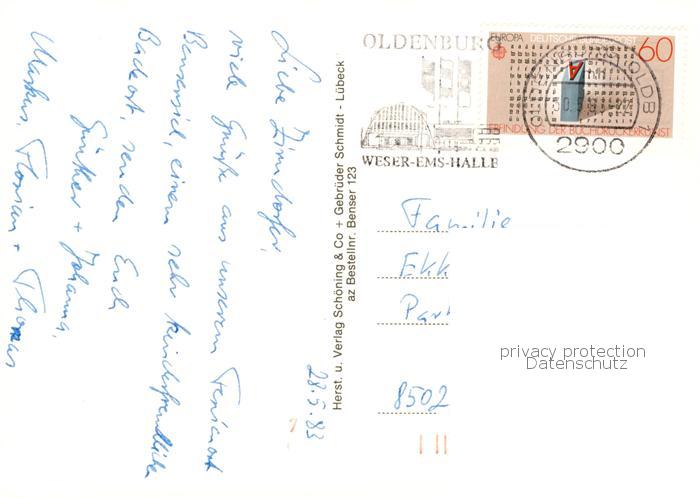 Liebe Zirndorfer,
viele Grüße aus unserem Ferienort
Bensersiel, einem sehr kinderfreundlichen
Badeort, senden Euch
Günther + Johanna,
Markus, Florian + Thomas
28.5.83
Herst. u. Verlag Schöning & Co + Gebrüder Schmidt - Lübeck
az Bestellnr. Benser 123
OLDENBURG
WESER-EMS-HALLE
EUROPA DEUTSCHE BUNDESPOST 60
ERFINDUNG DER BUCHDRUCKERKUNST
2900
Familie
Ekk
Par
8502
privacy protection
Datenschutz